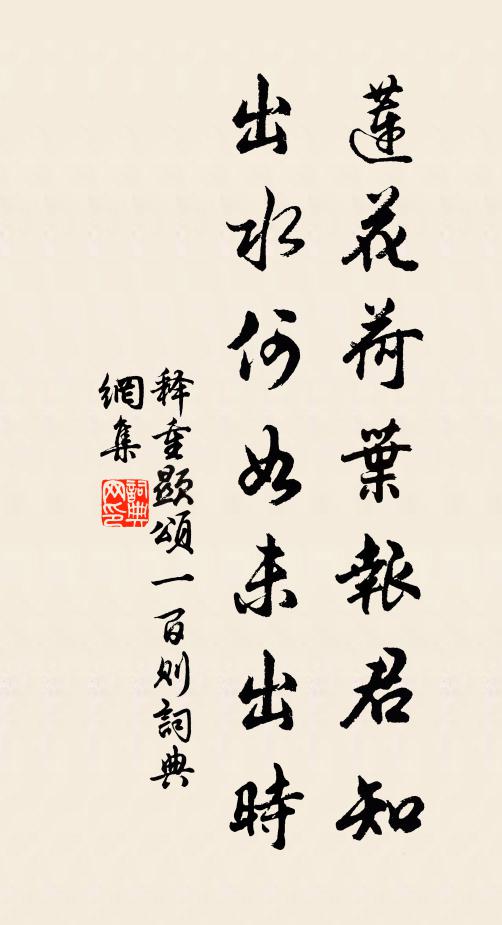 蓮花荷葉報君知
出水何如未出時
釋重顯頌一百則詞典
網集
詞典網印